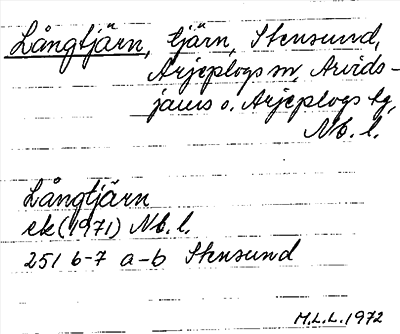 Långtjärn, tjärn, Stensund,
Arjeplogs sn, Arvids-
jaurs o. Arjeplogs tg,
Nb. l.
Långtjärn
ek (1971) Nb. l.
25I 6-7 a-b Stensund
M.L.L. 1972